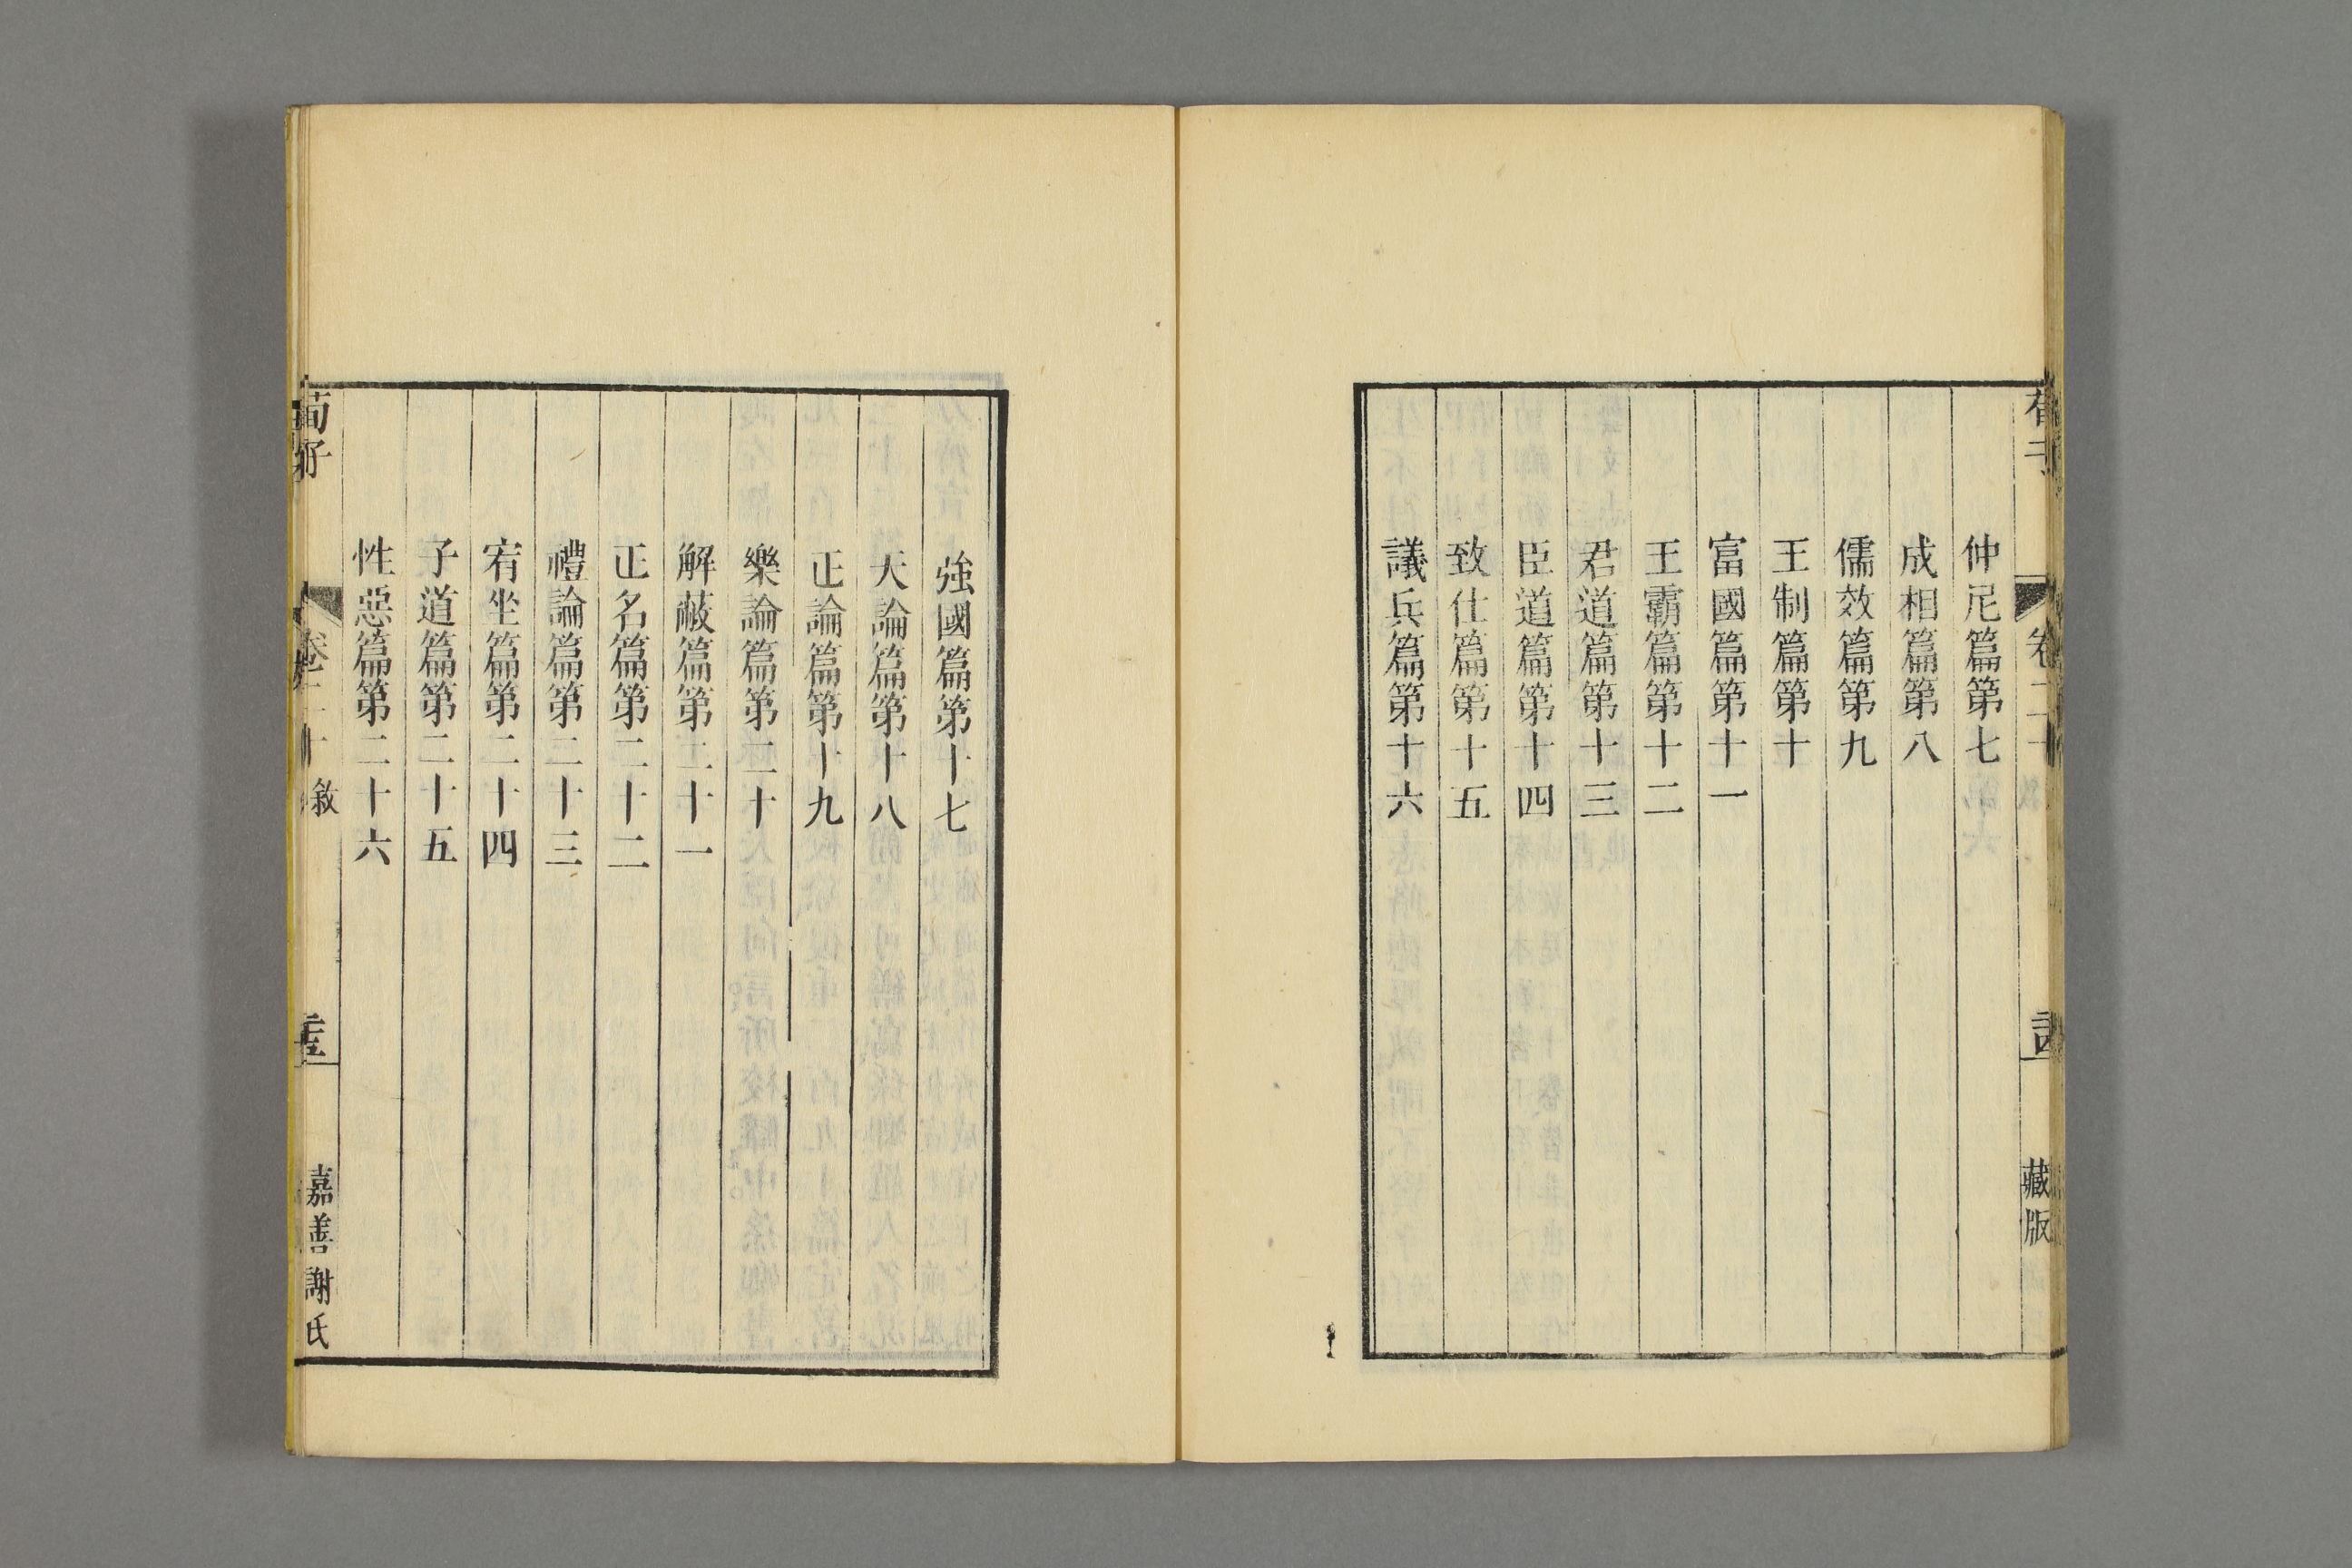 荀子
卷二十
藏版
仲尼篇第七
成相篇第八
儒效篇第九
王制篇第十
富國篇第十一
王霸篇第十二
君道篇第十三
臣道篇第十四
致仕篇第十五
議兵篇第十六
強國篇第十七
天論篇第十八
正論篇第十九
樂論篇第二十
解蔽篇第二十一
正名篇第二十二
禮論篇第二十三
宥坐篇第二十四
子道篇第二十五
性惡篇第二十六
荀子
卷二十
敘
嘉善謝氏